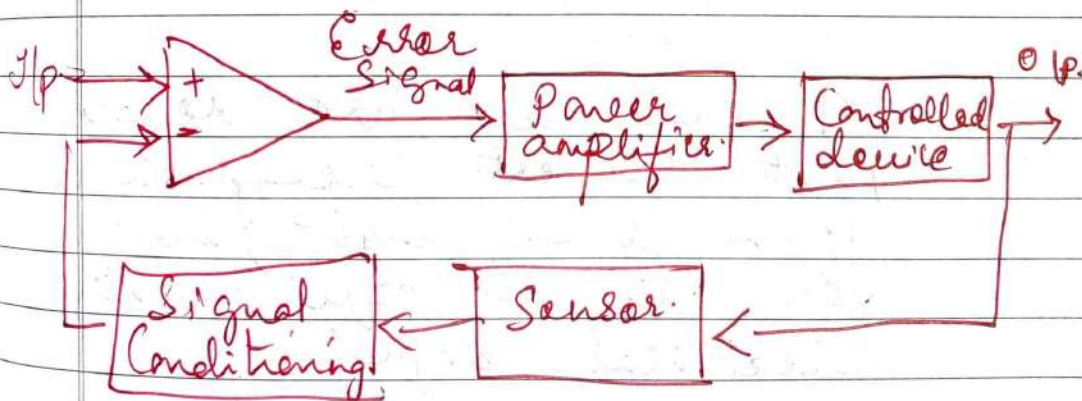 I/p
+
-
Error
Signal
Power
amplifier.
Controlled
device
O/p.
Signal
Conditioning
Sensor.